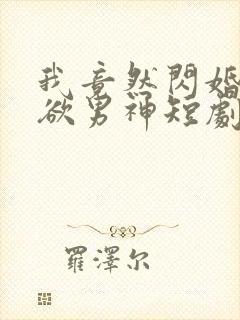 我竟然閃婚
欲男神短劇
羅澤尔